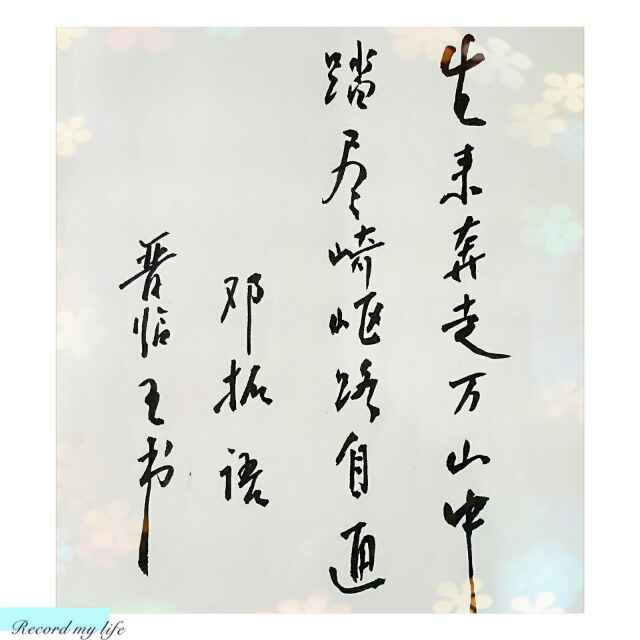 生来奔走万山中
踏尽崎岖路自通
邓拓语
晋怡王书
Record my life